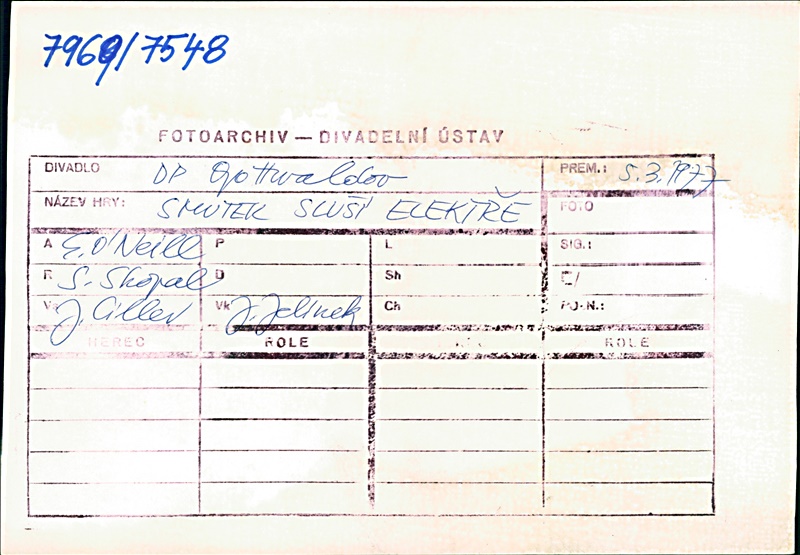 7969/7548
FOTOARCHIV — DIVADELNÍ ÚSTAV
DIVADLO DP Gottwaldov PREM.: 5.3.1977
NÁZEV HRY: SMUTEK SLUŠÍ ELEKTŘE FOTO
A E. O'Neill P L SIG.:
R S. Skopal D Sh Č/
V J. Ciller Vk J. Jelínek Ch
HEREC ROLE ROLE